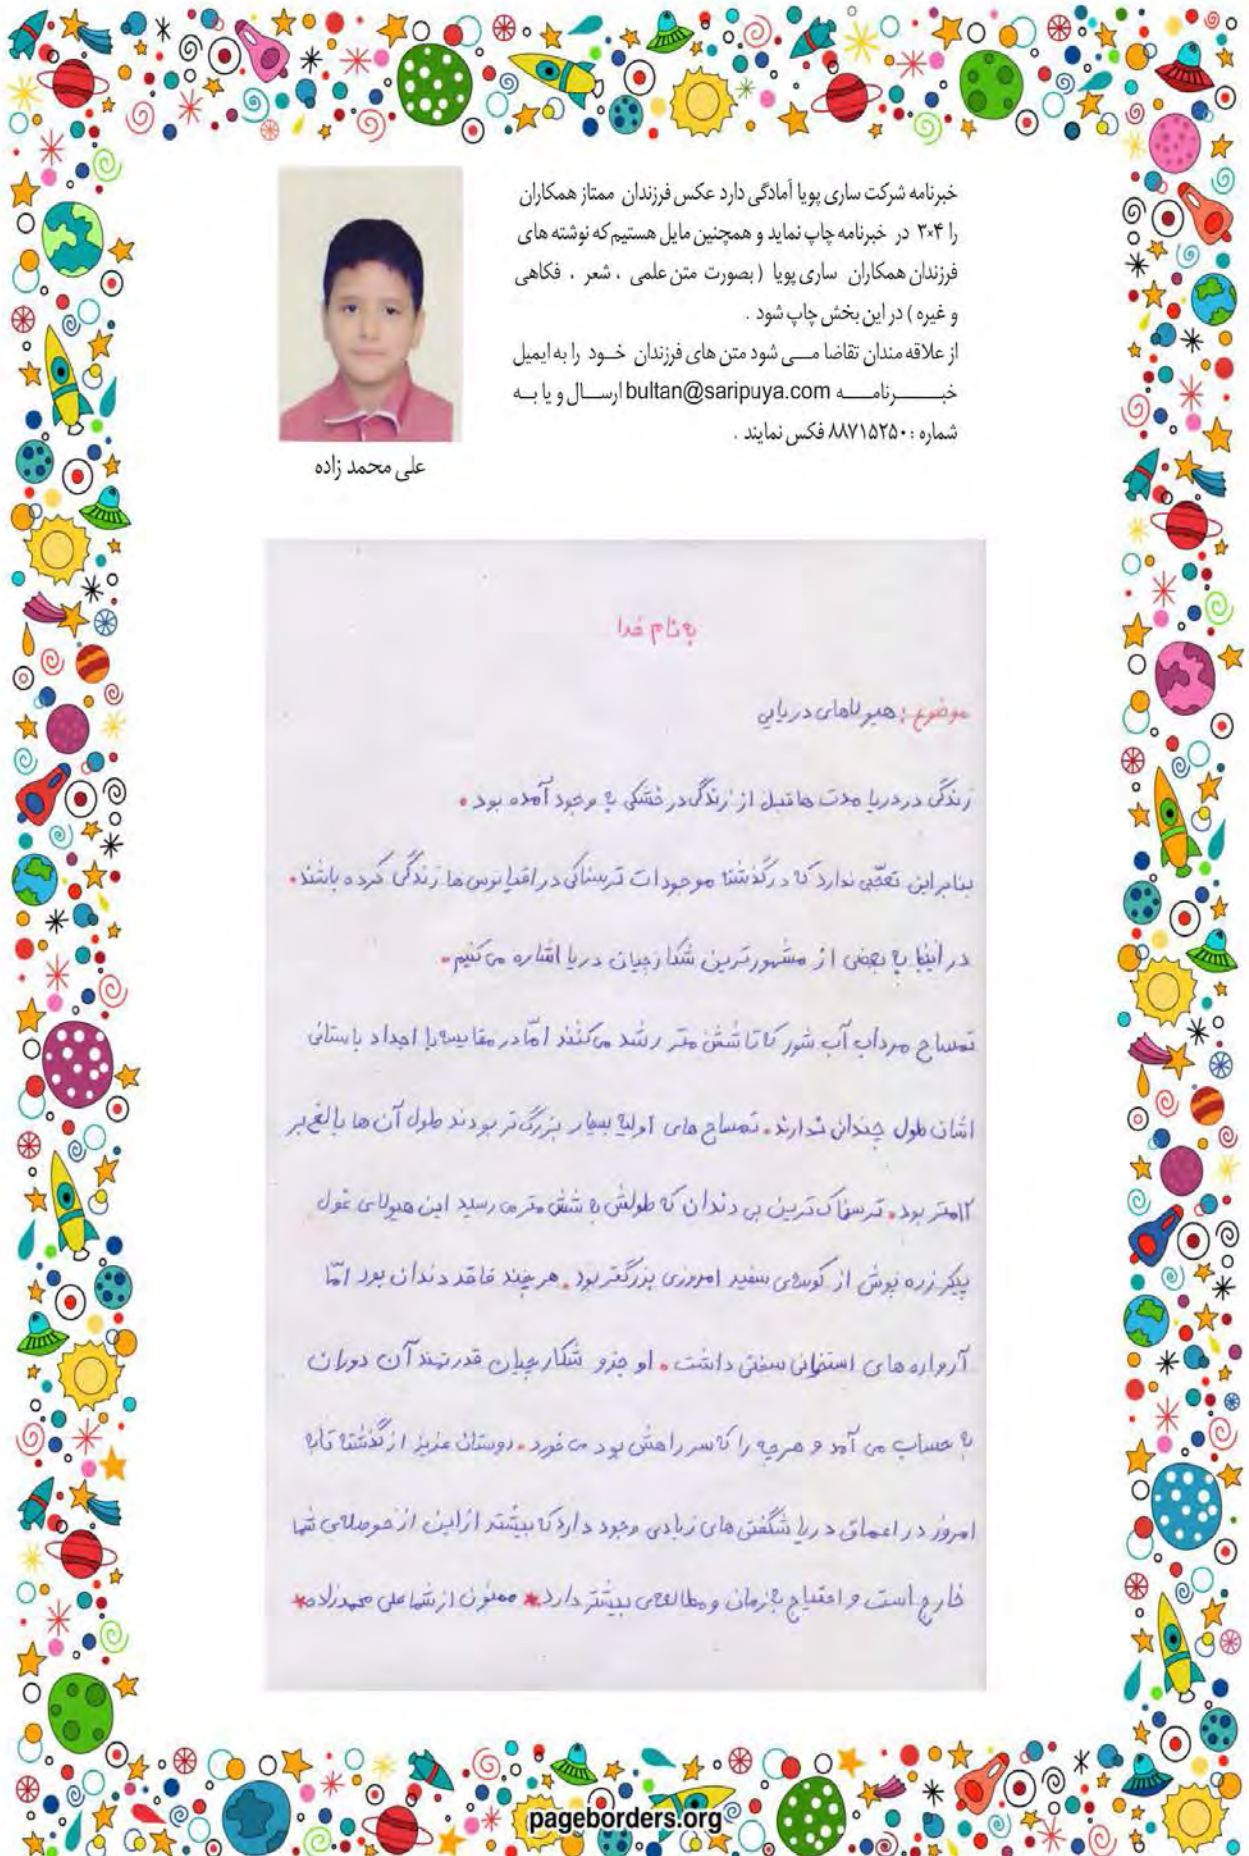 خبرنامه شرکت ساری پویا آمادگی دارد عکس فرزندان ممتاز همکاران
را ۳×۴ در خبرنامه چاپ نماید و همچنین مایل هستیم که نوشته های
فرزندان همکاران ساری پویا ( بصورت متن علمی ، شعر ، فکاهی
و غیره ) در این بخش چاپ شود .
از علاقه مندان تقاضا مــی شود متن های فرزندان خــود را به ایمیل
خبـــــــرنامـــــه bultan@saripuya.com ارســـال و یا بــه
شماره : ۸۸۷۱۵۲۵۰ فکس نمایند .
علی محمد زاده
به نام خدا
موضوع : هیولاهای دریایی
زندگی در دریا مدت ها قبل از زندگی در خشکی به وجود آمده بود .
بنابراین تعجّبی ندارد که در گذشته موجودات ترسناکی در اقیانوس ها زندگی کرده باشند .
در اینجا به بعضی از مشهورترین شکارچیان دریا اشاره می کنیم .
تمساح مرداب آب شور که تا شش متر رشد می کنند امّا در مقایسه با اجداد باستانی
اشان طول چندانی ندارند . تمساح های اولیه بسیار بزرگ تر بودند طول آن ها بالغ بر
۱۲متر بود . ترسناک ترین بی دندان که طولش به شش متر می رسید این هیولای غول
پیکر زره پوش از کوسه‌ی سفید امروزی بزرگتر بود . هر چند فاقد دندان بود امّا
آرواره های استخوانی سختی داشت . او جزو شکارچیان قدرتمند آن دوران
به حساب می آمد و هرچه را که سر راهش بود می خورد . دوستان عزیز از گذشته تا به
امروز در اعماق دریا شگفتی های زیادی وجود دارد که بیشتر از این از حوصله‌ی شما
خارج است و احتیاج به زمان و مطالعه‌ی بیشتر دارد * ممنون از شما علی محمدزاده *
pageborders.org